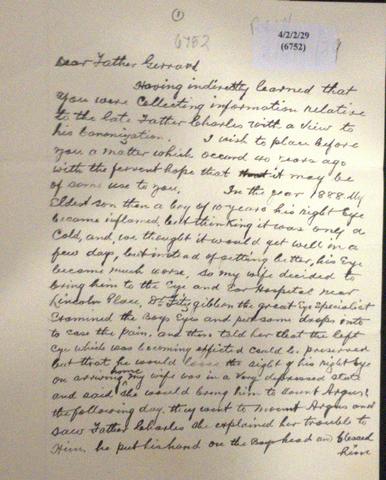 ①
6752
4/2/2/29
(6752)
Dear Father Gerrard
Having indirectly learned that
you were collecting information relative
to the late Father Charles with a view to
his Canonization. I wish to place before
you a matter which occurd 40 years ago
with the fervent hope that it may be
of some use to you. In the year 1888. My
Eldest son then a boy of 10 years his right Eye
became inflamed, but thinking it was only a
Cold, and we thought it would get well in a
few days, but instead of getting better, his Eye
became much worse, so my wife decided to
bring him to the Eye and Ear Hospital near
Lincoln Place, Dr Fitzgibbon the great Eye Specialist
Examined the Boys Eyes and put some drops into
to ease the pain, and then told her that the left
Eye which was becoming affected could be preserved
but that he would loose the sight of his right Eye
on arriving home my wife was in a very depressed state
and said she would bring him to Mount Argus
the following day. they went to Mount Argus and
saw Father Charles she explained her trouble to
Him, he put his hand on the Boys head and blessed
him